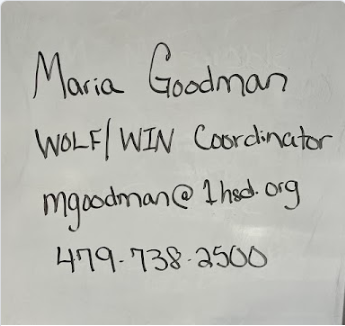 Maria Goodman
WOLF/WIN Coordinator
mgoodman@1hsd.org
479-738-2500